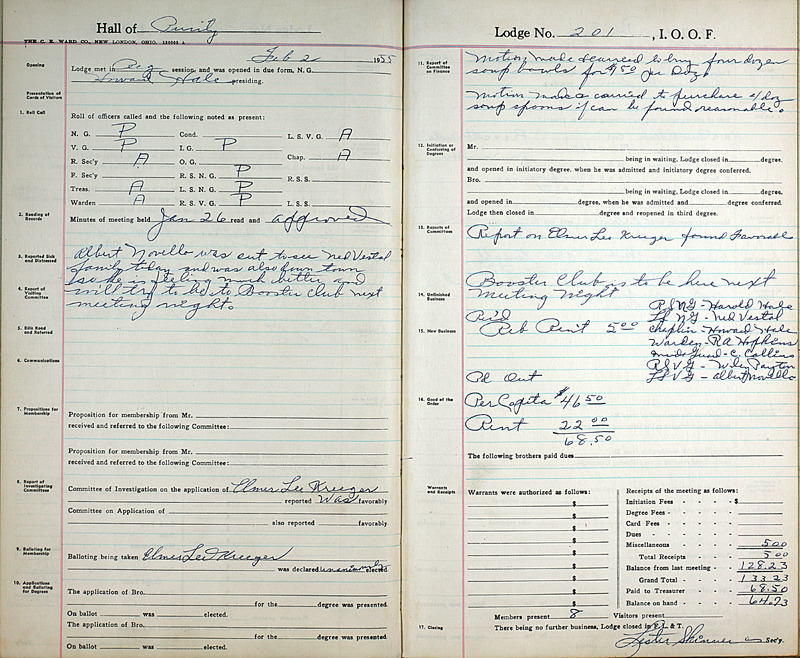 Hall of Purity
THE C. E. WARD CO., NEW LONDON, OHIO.
Feb 2 1955
Opening
Lodge met in Reg session, and was opened in due form, N. G.
Howard Hale presiding.
Presentation of Cards of Visitors
1. Roll Call
Roll of officers called and the following noted as present:
N. G. P Cond. L. S. V. G. A
V. G. P I. G. P
R. Sec'y A O. G. Chap. A
F. Sec'y R. S. N. G. P R. S. S.
Treas. A L. S. N. G. P
Warden A R. S. V. G. P L. S. S.
2. Reading of Records
Minutes of meeting held Jan 26 read and approved
3. Reported Sick and Distressed
Albert Novello was out to see Ned Vestal
family today and was also down town
so he is feeling much better and
4. Report of Visiting Committee
will try to be to Booster Club next
meeting night.
5. Bills Read and Referred
6. Communications
7. Propositions for Membership
Proposition for membership from Mr.
received and referred to the following Committee:
Proposition for membership from Mr.
received and referred to the following Committee:
8. Report of Investigating Committees
Committee of Investigation on the application of Elmer Lee Krieger
reported Was favorably
Committee on Application of
also reported favorably
9. Balloting for Membership
Balloting being taken Elmer Lee Krieger
was declared unanimously elected.
10. Applications and Balloting for Degrees
The application of Bro.
for the degree was presented.
On ballot was elected.
The application of Bro.
for the degree was presented.
On ballot was elected.
Lodge No. 201, I. O. O. F.
11. Report of Committee on Finance
Motion made & carried to buy four dozen
soup bowls for $9.50 per Doz.
Motion made & carried to purchase doz
soup spoons if can be found reasonable.
12. Initiation or Conferring of Degrees
Mr.
being in waiting, Lodge closed in degree,
and opened in initiatory degree, when he was admitted and initiatory degree conferred.
Bro.
being in waiting, Lodge closed in degree,
and opened in degree, when he was admitted and degree conferred.
Lodge then closed in degree and reopened in third degree.
13. Reports of Committees
Report on Elmer Lee Krieger found Favorable
Booster Club is to be here next
14. Unfinished Business
Meeting Night
RSNG - Harold Hale
Rec'd
LSNG - Ned Vestal
15. New Business
Reb Rent 5.00
Chaplin - Howard Hale
Warden - RA Hopkins
Inside Guard - C. Collins
RSVG - Wiley Payton
Pd Out
LSVG - Albert Novello
16. Good of the Order
Per Capita $46.50
Rent 22.00
68.50
The following brothers paid dues
Warrants and Receipts
Warrants were authorized as follows:
$
$
$
$
$
$
$
$
$
Receipts of the meeting as follows:
Initiation Fees - - - - $
Degree Fees - - - - -
Card Fees - - - -
Dues - - - - -
Miscellaneous - - - - 5.00
Total Receipts - - - 5.00
Balance from last meeting - - 128.23
Grand Total - - - 133.23
Paid to Treasurer - - - 68.50
Balance on hand - - - 64.73
Members present 8 Visitors present
17. Closing
There being no further business, Lodge closed in F. L. & T.
Lester Skinner Sec'y.